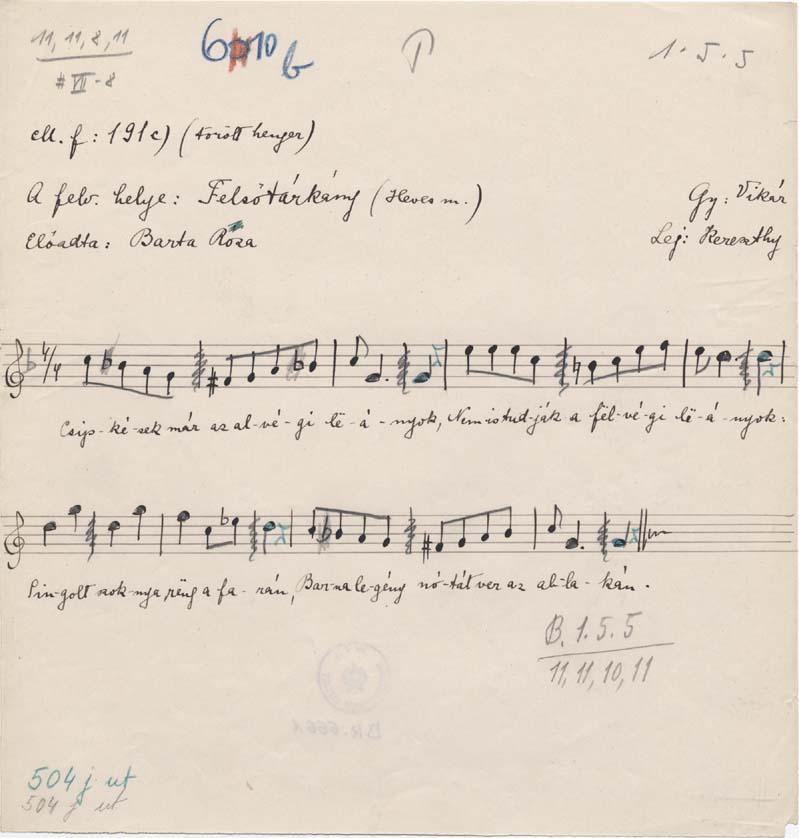 11, 11, 8, 11
# VII - 8
10 b
1. 5. 5
M. f: 191c) (törött henger)
A felv. helye: Felsőtárkány (Heves m.)
Gy: Vikár
Előadta: Barta Róza
Lej: Kereszthy
4/4
Csips-ké-sek már az al-vé-gi lë-á-nyok, Nem is tud-ják a fël-vé-gi lë-á-nyok:
Pin-golt szok-nya, rëng a fa-rán, Bar-na le-gény nó-tát ver az ab-la-kán.
B. 1. 5. 5
11, 11, 10, 11
504 j ut
504 j ut